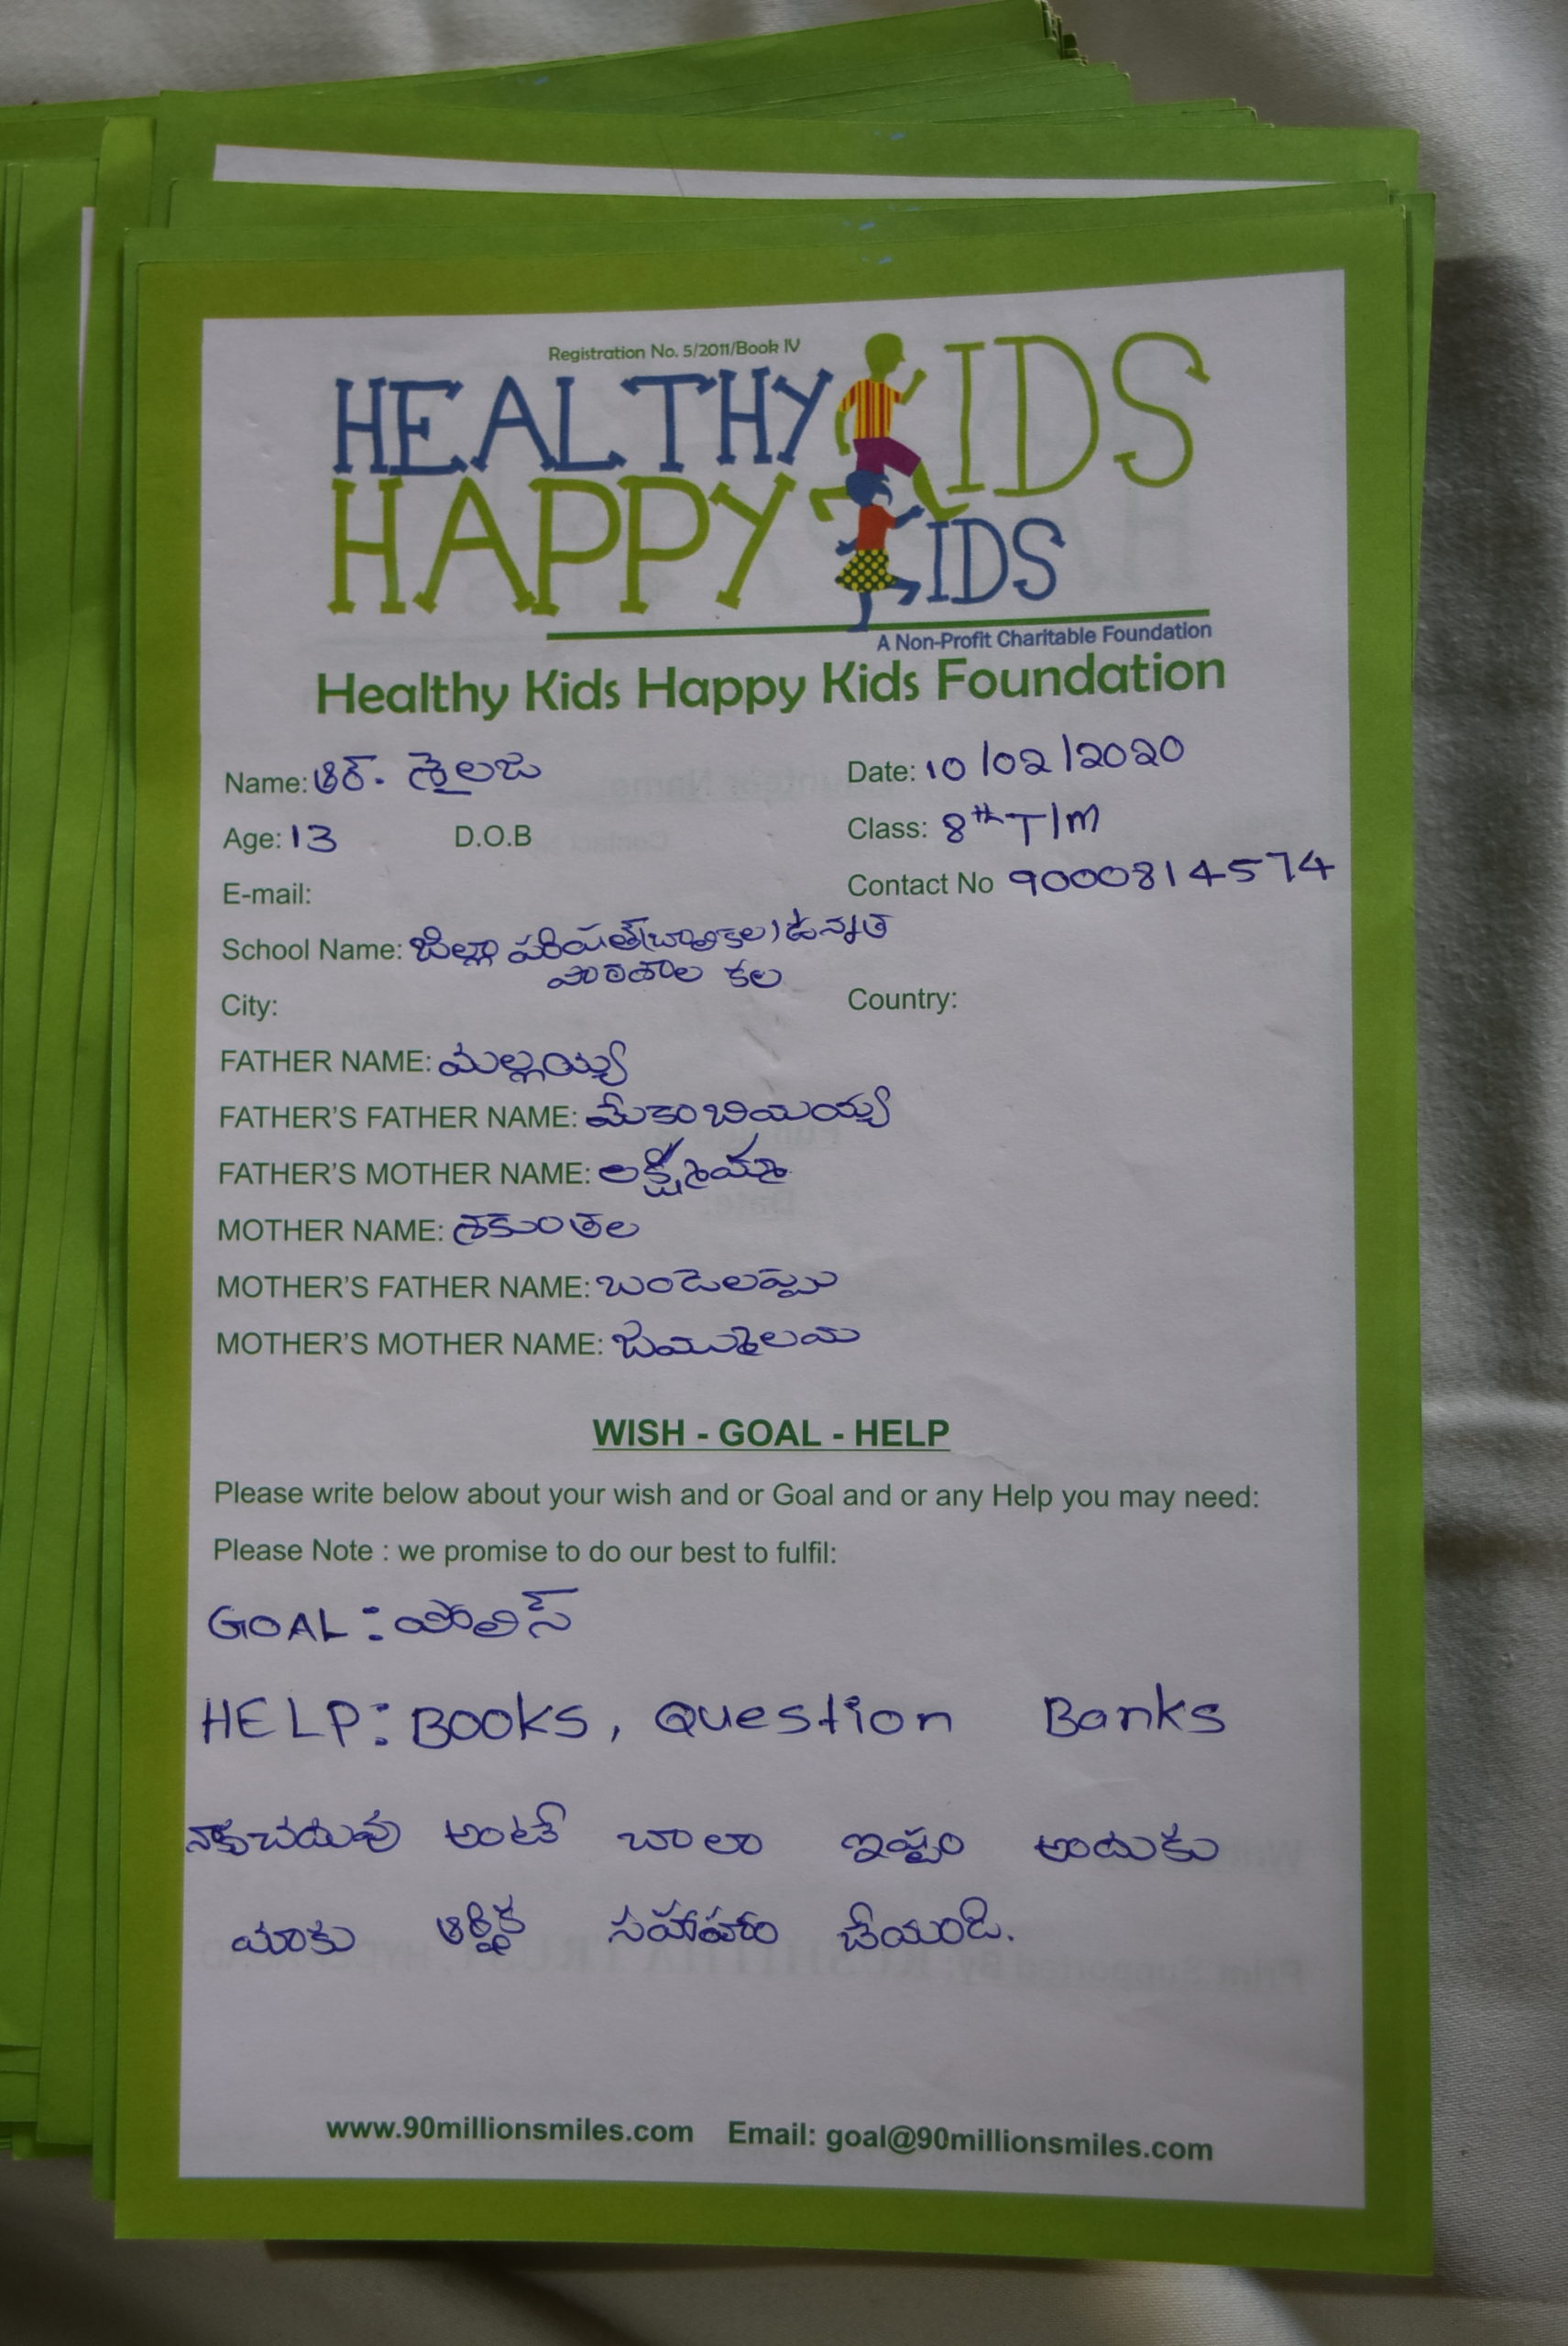 Registration No. 5/2011/Book IV
HEALTHY KIDS
HAPPY KIDS
A Non-Profit Charitable Foundation
Healthy Kids Happy Kids Foundation
Name: ఆర్. శైలజ Date: 10/02/2020
Age: 13 D.O.B Class: 8th T/M
E-mail: Contact No 9000814574
School Name: జిల్లా పరిషత్(బాలికల) ఉన్నత
పాఠశాల కల
City: Country:
FATHER NAME: మల్లయ్య
FATHER'S FATHER NAME:
FATHER'S MOTHER NAME: లక్ష్మమ్మ
MOTHER NAME: శకుంతల
MOTHER'S FATHER NAME:
MOTHER'S MOTHER NAME:
WISH - GOAL - HELP
Please write below about your wish and or Goal and or any Help you may need:
Please Note : we promise to do our best to fulfil:
GOAL: పోలిస్
HELP: BOOKS, Question Banks
నాకు చదువు అంటే చాలా ఇష్టం అందుకు
మాకు ఆర్థిక సహాహం చేయండి.
www.90millionsmiles.com Email: goal@90millionsmiles.com